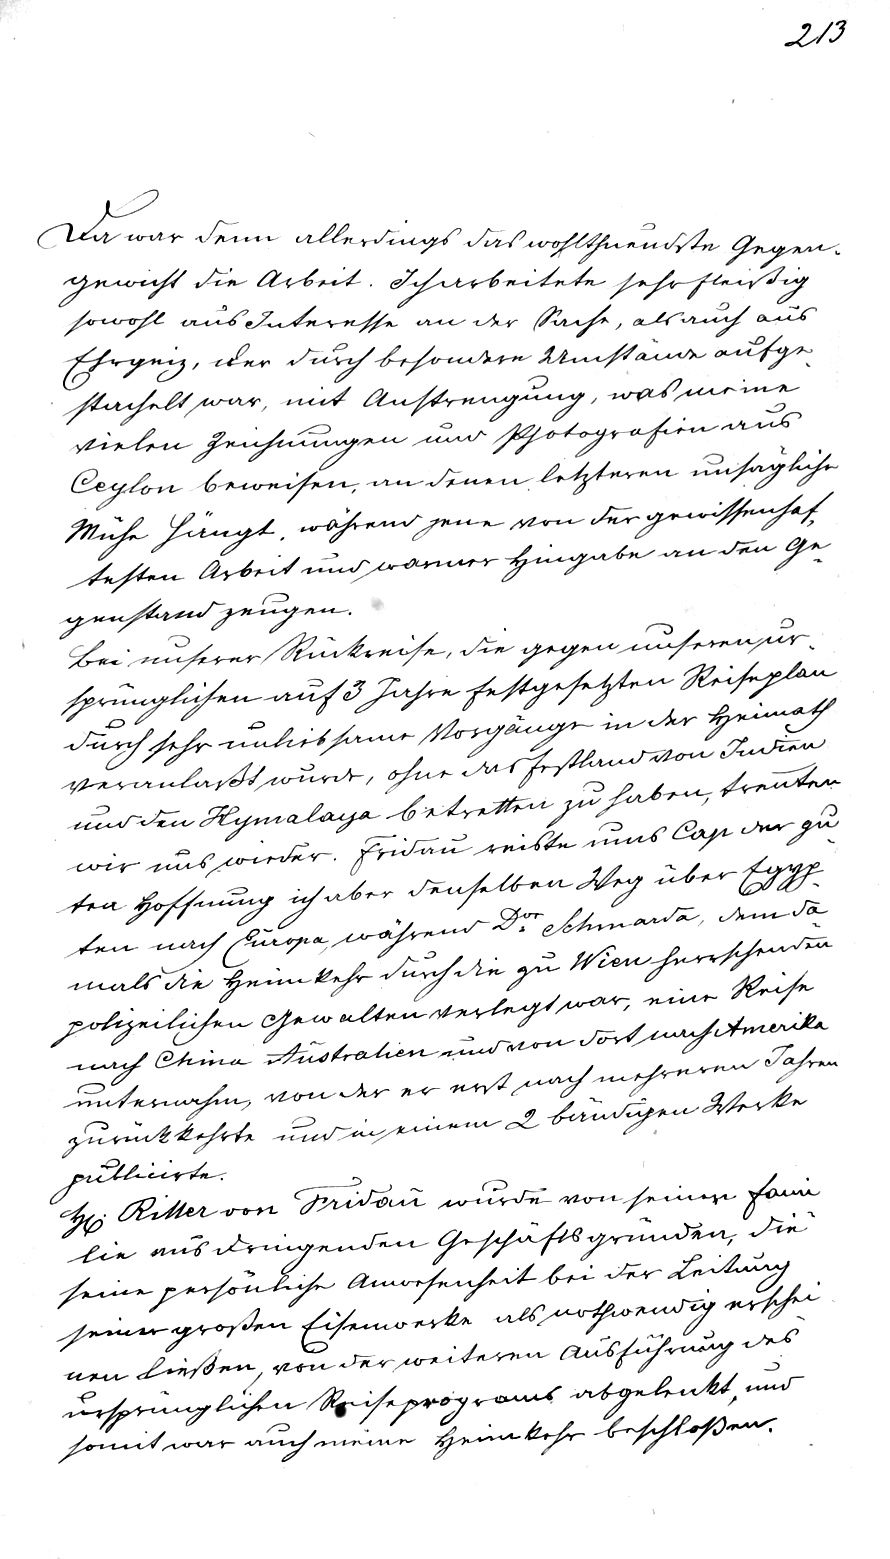 213
Da war denn allerdings das wohlthuendste Gegen-
gewicht die Arbeit. Ich arbeitete sehr fleißig
sowohl aus Interesse an der Sache, als auch aus
Ehrgeiz, der durch besondere Umstände aufge-
stachelt war, mit Anstrengung, was meine
vielen Zeichnungen und Photografien aus
Ceylon beweisen, an denen letzteren unsägliche
Mühe hängt, während jene von der gewissenhaf-
testen Arbeit und warmer Hingabe an den Ge-
genstand zeugen.
Bei unserer Rückreise, die gegen unseren ur-
sprünglichen auf 3 Jahre festgesetzten Reiseplan
durch sehr unliebsame Vorgänge in der Heimath
veranlaßt wurde, ohne das Festland von Indien
und den Hymalaya betretten zu haben, trenten
wir uns wieder. Fridau reiste ums Cap der gu-
ten Hoffnung ich aber denselben Weg über Egyp-
ten nach Europa, während Dor Schmarda, dem da-
mals die Heimkehr durch die zu Wien herrschenden
polizeilichen Gewalten verlegt war, eine Reise
nach China Australien und von dort nach Amerika
unternahm, von der er erst nach mehreren Jahren
zurückkehrte und in einem 2 bändigen Werke
publicirte.
H. Ritter von Fridau wurde von seiner Fami-
lie aus dringenden Geschäftsgründen, die
seine persönliche Anwesenheit bei der Leitung
seiner großen Eisenwerke als nothwendig erschei-
nen ließen, von der weiteren Ausführung des
ursprünglichen Reiseprograms abgelenkt, und
somit war auch meine Heimkehr beschloßen.